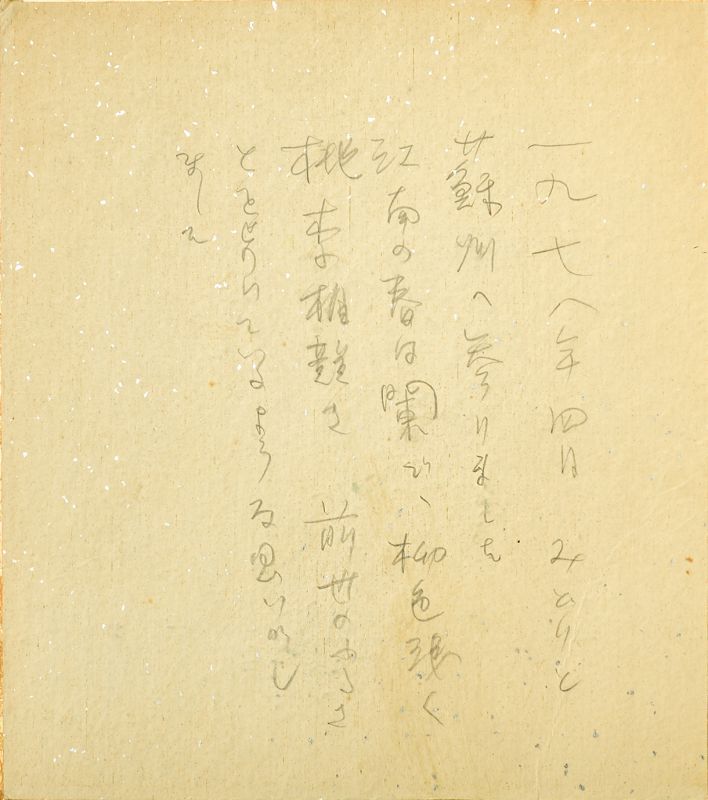 一九七八年四月 みどりと
蘇州へ参りました
江南の春は闌で、柳色濃く
桃李相競き 前世のふるさ
とをとりいているような思いがし
ました